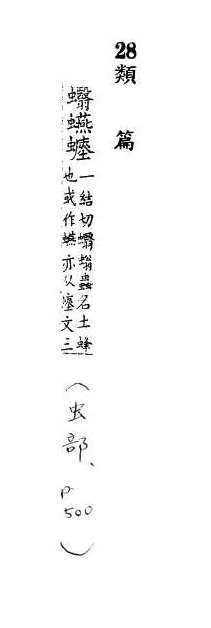 28
類篇
蠮
一結切蠮螉蟲名土蜂
也或作亦从文三
(虫部、p500)